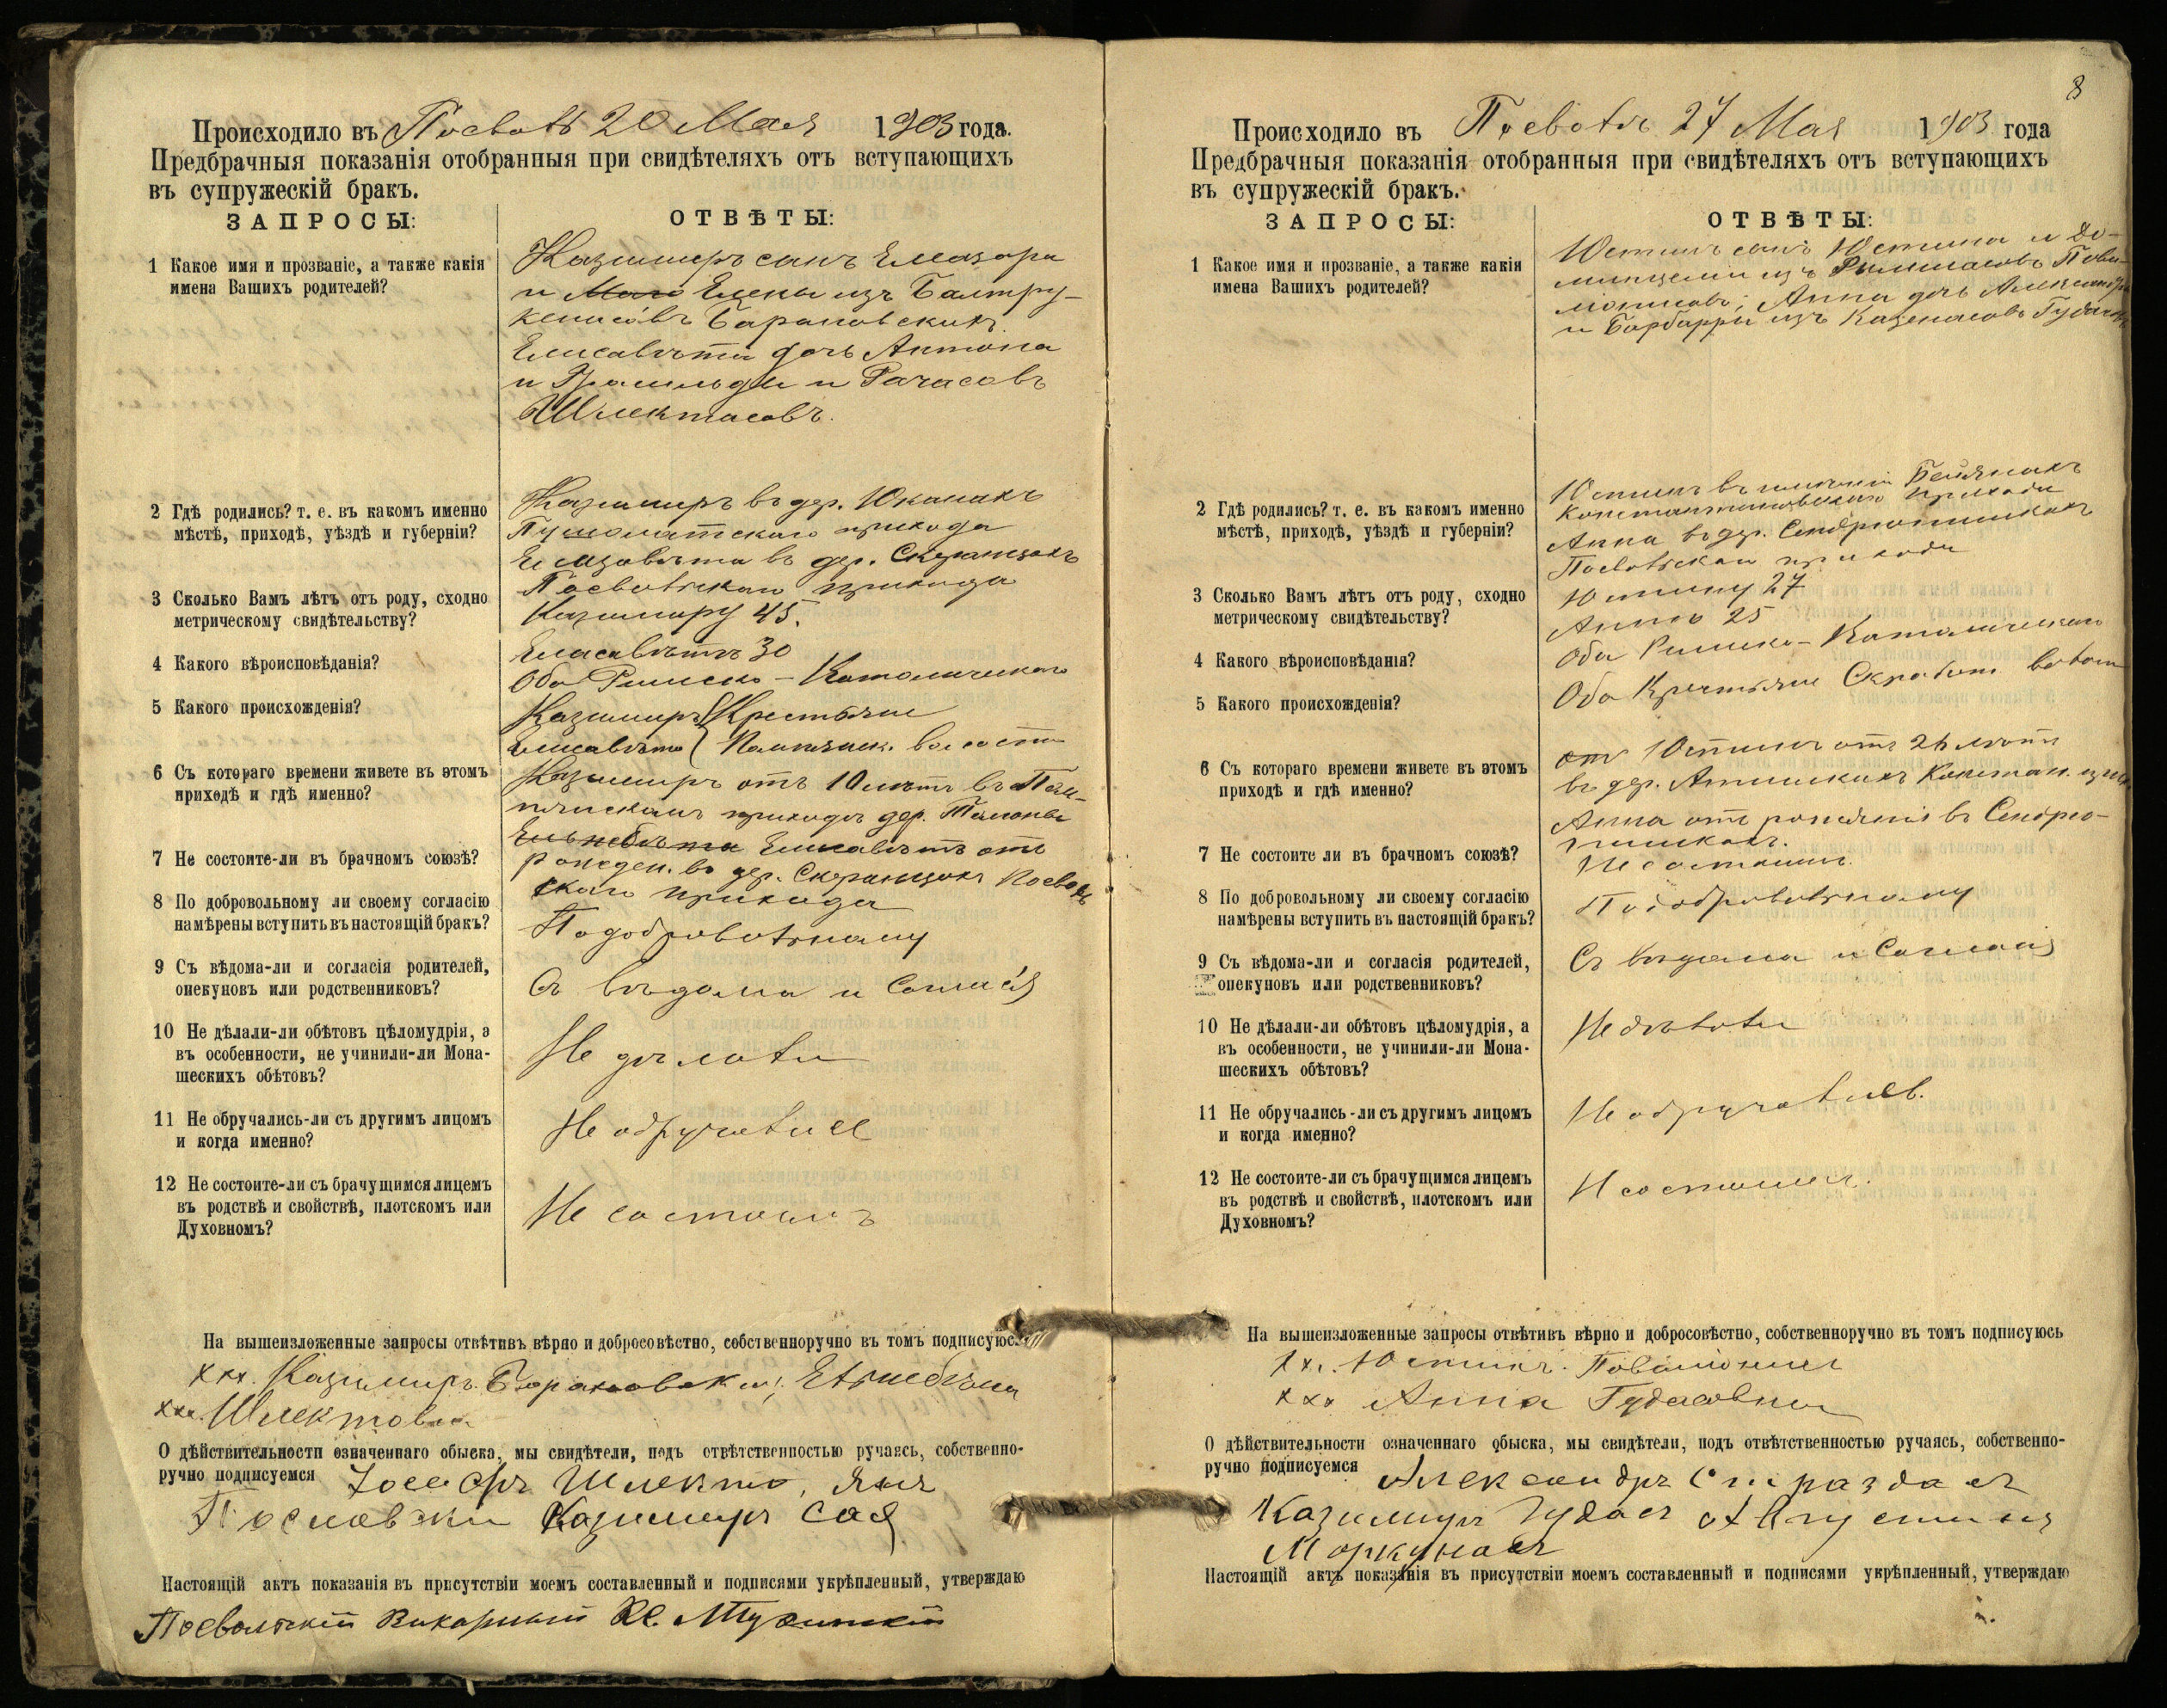 Происходило въ Посволѣ 20 Мая 1903 года.
Предбрачныя показанія отобранныя при свидѣтеляхъ отъ вступающихъ
въ супружескій бракъ.
ЗАПРОСЫ:
ОТВѢТЫ:
1 Какое имя и прозваніе, а также какія
имена Вашихъ родителей?
Казимиръ сынъ Елиазара
и Елены изъ Балтру-
кенисовъ Барановскихъ.
Елисавѣта дочь Антона
и Рачасовъ
Шлектасовъ.
2 Гдѣ родились? т. е. въ какомъ именно
мѣстѣ, приходѣ, уѣздѣ и губерніи?
Казимиръ въ дер. Юканахъ
Пушолатскаго прихода
Елизавѣта въ дер.
Посвольскаго прихода
3 Сколько Вамъ лѣтъ отъ роду, сходно
метрическому свидѣтельству?
Казимиру 45.
Елисавѣтѣ 30
4 Какого вѣроисповѣданія?
Оба Римско-Католическаго
5 Какого происхожденія?
Казимиръ Крестьяне
Елисавѣта волости
6 Съ котораго времени живете въ этомъ
приходѣ и гдѣ именно?
Казимиръ отъ 10 лѣтъ въ
приходѣ дер.
Елисавѣта отъ
рожден. въ дер. Посволь
скаго прихода
7 Не состоите-ли въ брачномъ союзѣ?
8 По добровольному ли своему согласію
намѣрены вступить въ настоящій бракъ?
По добровольному
9 Съ вѣдома-ли и согласія родителей,
опекуновъ или родственниковъ?
Съ вѣдома и Согласія
10 Не дѣлали-ли обѣтовъ цѣломудрія, а
въ особенности, не учинили-ли Мона-
шескихъ обѣтовъ?
Не дѣлали
11 Не обручались-ли съ другимъ лицомъ
и когда именно?
Не обручались
12 Не состоите-ли съ брачущимся лицемъ
въ родствѣ и свойствѣ, плотскомъ или
Духовномъ?
Не состоимъ
На вышеизложенные запросы отвѣтивъ вѣрно и добросовѣстно, собственноручно въ томъ подписуюсь
ххх. Казимиръ Барановскій, Ельжбета
ххх. Шлектова
О дѣйствительности означеннаго обыска, мы свидѣтели, подъ отвѣтственностью ручаясь, собственно-
ручно подписуемся Іосифъ Шлекто, Янъ
Казимиръ Сая
Настоящій актъ показанія въ присутствіи моемъ составленный и подписями укрѣпленный, утверждаю
Посвольскій Викарный Кс.
8
Происходило въ Посволѣ 27 Мая 1903 года
Предбрачныя показанія отобранныя при свидѣтеляхъ отъ вступающихъ
въ супружескій бракъ.
ЗАПРОСЫ:
ОТВѢТЫ:
1 Какое имя и прозваніе, а также какія
имена Вашихъ родителей?
Юстинъ сынъ Юстина и До-
изъ Пови-
Анна дочь Александра
и Барбары изъ Гудасовъ
2 Гдѣ родились? т. е. въ какомъ именно
мѣстѣ, приходѣ, уѣздѣ и губерніи?
Юстинъ въ имѣніи
Константиновскаго прихода
Анна въ дер.
Посвольскаго прихода
3 Сколько Вамъ лѣтъ отъ роду, сходно
метрическому свидѣтельству?
Юстину 27
Аннѣ 25
4 Какого вѣроисповѣданія?
Оба Римско-Католическаго
5 Какого происхожденія?
Оба Крестьяне волости
6 Съ котораго времени живете въ этомъ
приходѣ и гдѣ именно?
Юстинъ отъ лѣтъ
въ дер. Констан.
Анна отъ рожденія въ
7 Не состоите ли въ брачномъ союзѣ?
Не состоимъ.
8 По добровольному ли своему согласію
намѣрены вступить въ настоящій бракъ?
По добровольному
9 Съ вѣдома-ли и согласія родителей,
опекуновъ или родственниковъ?
Съ вѣдома и Согласія
10 Не дѣлали-ли обѣтовъ цѣломудрія, а
въ особенности, не учинили-ли Мона-
шескихъ обѣтовъ?
Не дѣлали
11 Не обручались-ли съ другимъ лицомъ
и когда именно?
Не обручались.
12 Не состоите-ли съ брачущимся лицемъ
въ родствѣ и свойствѣ, плотскомъ или
Духовномъ?
Н состоимъ.
На вышеизложенные запросы отвѣтивъ вѣрно и добросовѣстно, собственноручно въ томъ подписуюсь
ххх. Юстинъ.
ххх Анна Гудасовна
О дѣйствительности означеннаго обыска, мы свидѣтели, подъ отвѣтственностью ручаясь, собственно-
ручно подписуемся Александръ Страздасъ
Казимиръ Гудасъ Августинъ
Моркунасъ
Настоящій актъ показанія въ присутствіи моемъ составленный и подписями укрѣпленный, утверждаю